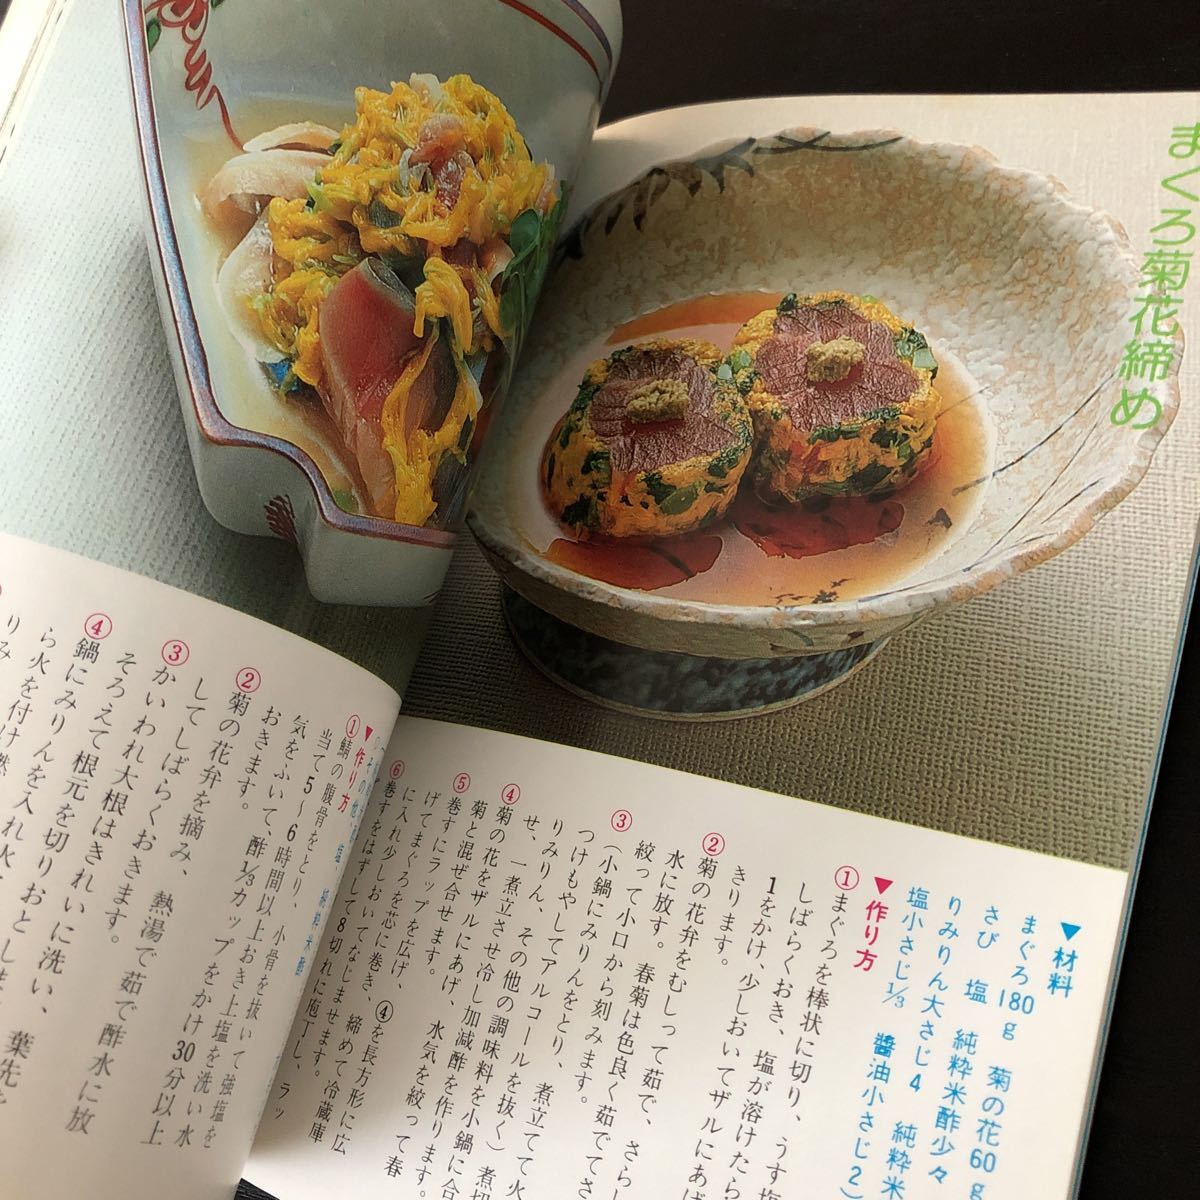 まぐろ菊花締め
▼材料
まぐろ180g 菊の花60g
さび 塩 純粋米酢少々
りみりん大さじ4 純粋米
塩小さじ⅓ 醬油小さじ2)
▼作り方
①まぐろを棒状に切り、うす塩
しばらくおき、塩が溶けたら
1をかけ、少しおいてザルにあげ
きります。
②菊の花弁をむしって茹で、
水に放す。春菊は色良く茹でてさ
絞って小口から刻みます。
③(小鍋にみりんをとり、煮立てて火
つけもやしてアルコールを抜く)
りみりん、その他の調味料を小鍋に合
せ、一煮立させ冷し加減酢を作ります。
④菊の花をザルにあげ、水気を絞って春
菊と混ぜ合せます。
⑤巻すにラップを広げ、④を長方形に広
げてまぐろを芯に巻き、締めて冷蔵庫
に入れ少しおいてなじませます。
⑥巻すをはずして8切れに庖丁し、ラッ
▼作り方
①鯖の腹骨をとり、小骨を抜いて強塩を
当て5〜6時間以上おき上塩を洗い水
気をふいて、酢⅓カップをかけ30分以上
おきます。
②菊の花弁を摘み、熱湯で茹で酢水に放
してしばらくおきます。
③かいわれ大根はきれいに洗い、葉先を
そろえて根元を切りおとします。
④鍋にみりんを入れ火
ら火を付け燃
りみ